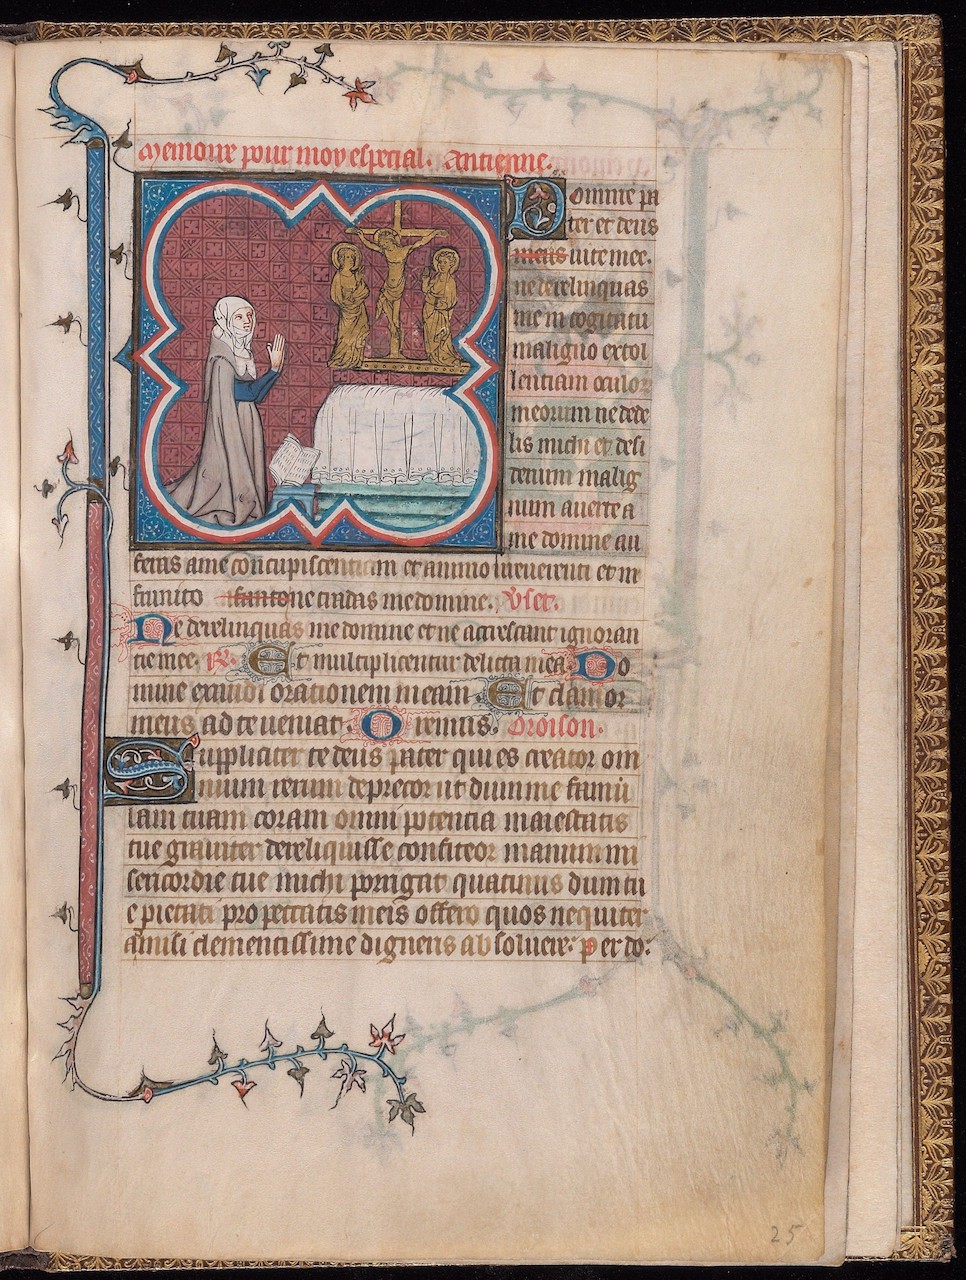 Memoire pour moy especial. Antienne.
Domine pa
ter et deus
meus vite mee.
ne derelinquas
me in cogitatu
maligno extol
lentiam oculor
meorum ne dede
lis michi et desi
derium malig
num auerte a
me domine au
feras a me concupiscentiam et animo irreuerenti et in
frunito ne tradas me domine. Vſet.
Ne derelinquas me domine et ne accrescant ignoran
tie mee. R. Et multiplicentur delicta mea. Do
mine exaudi orationem meam Et clamor
meus ad te veniat. Oremus. Oroison.
Suppliciter te deus pater qui es creator om
nium rerum deprecor ut dum me famu
lam tuam coram omni potencia maiestatis
tue grauiter dereliquisse confiteor manum mi
sericordie tue michi porrigat quatinus dum tu
e pietati pro peccatis meis offero quos nequiter
amisi clementissime digneris absoluere. Per do.
25